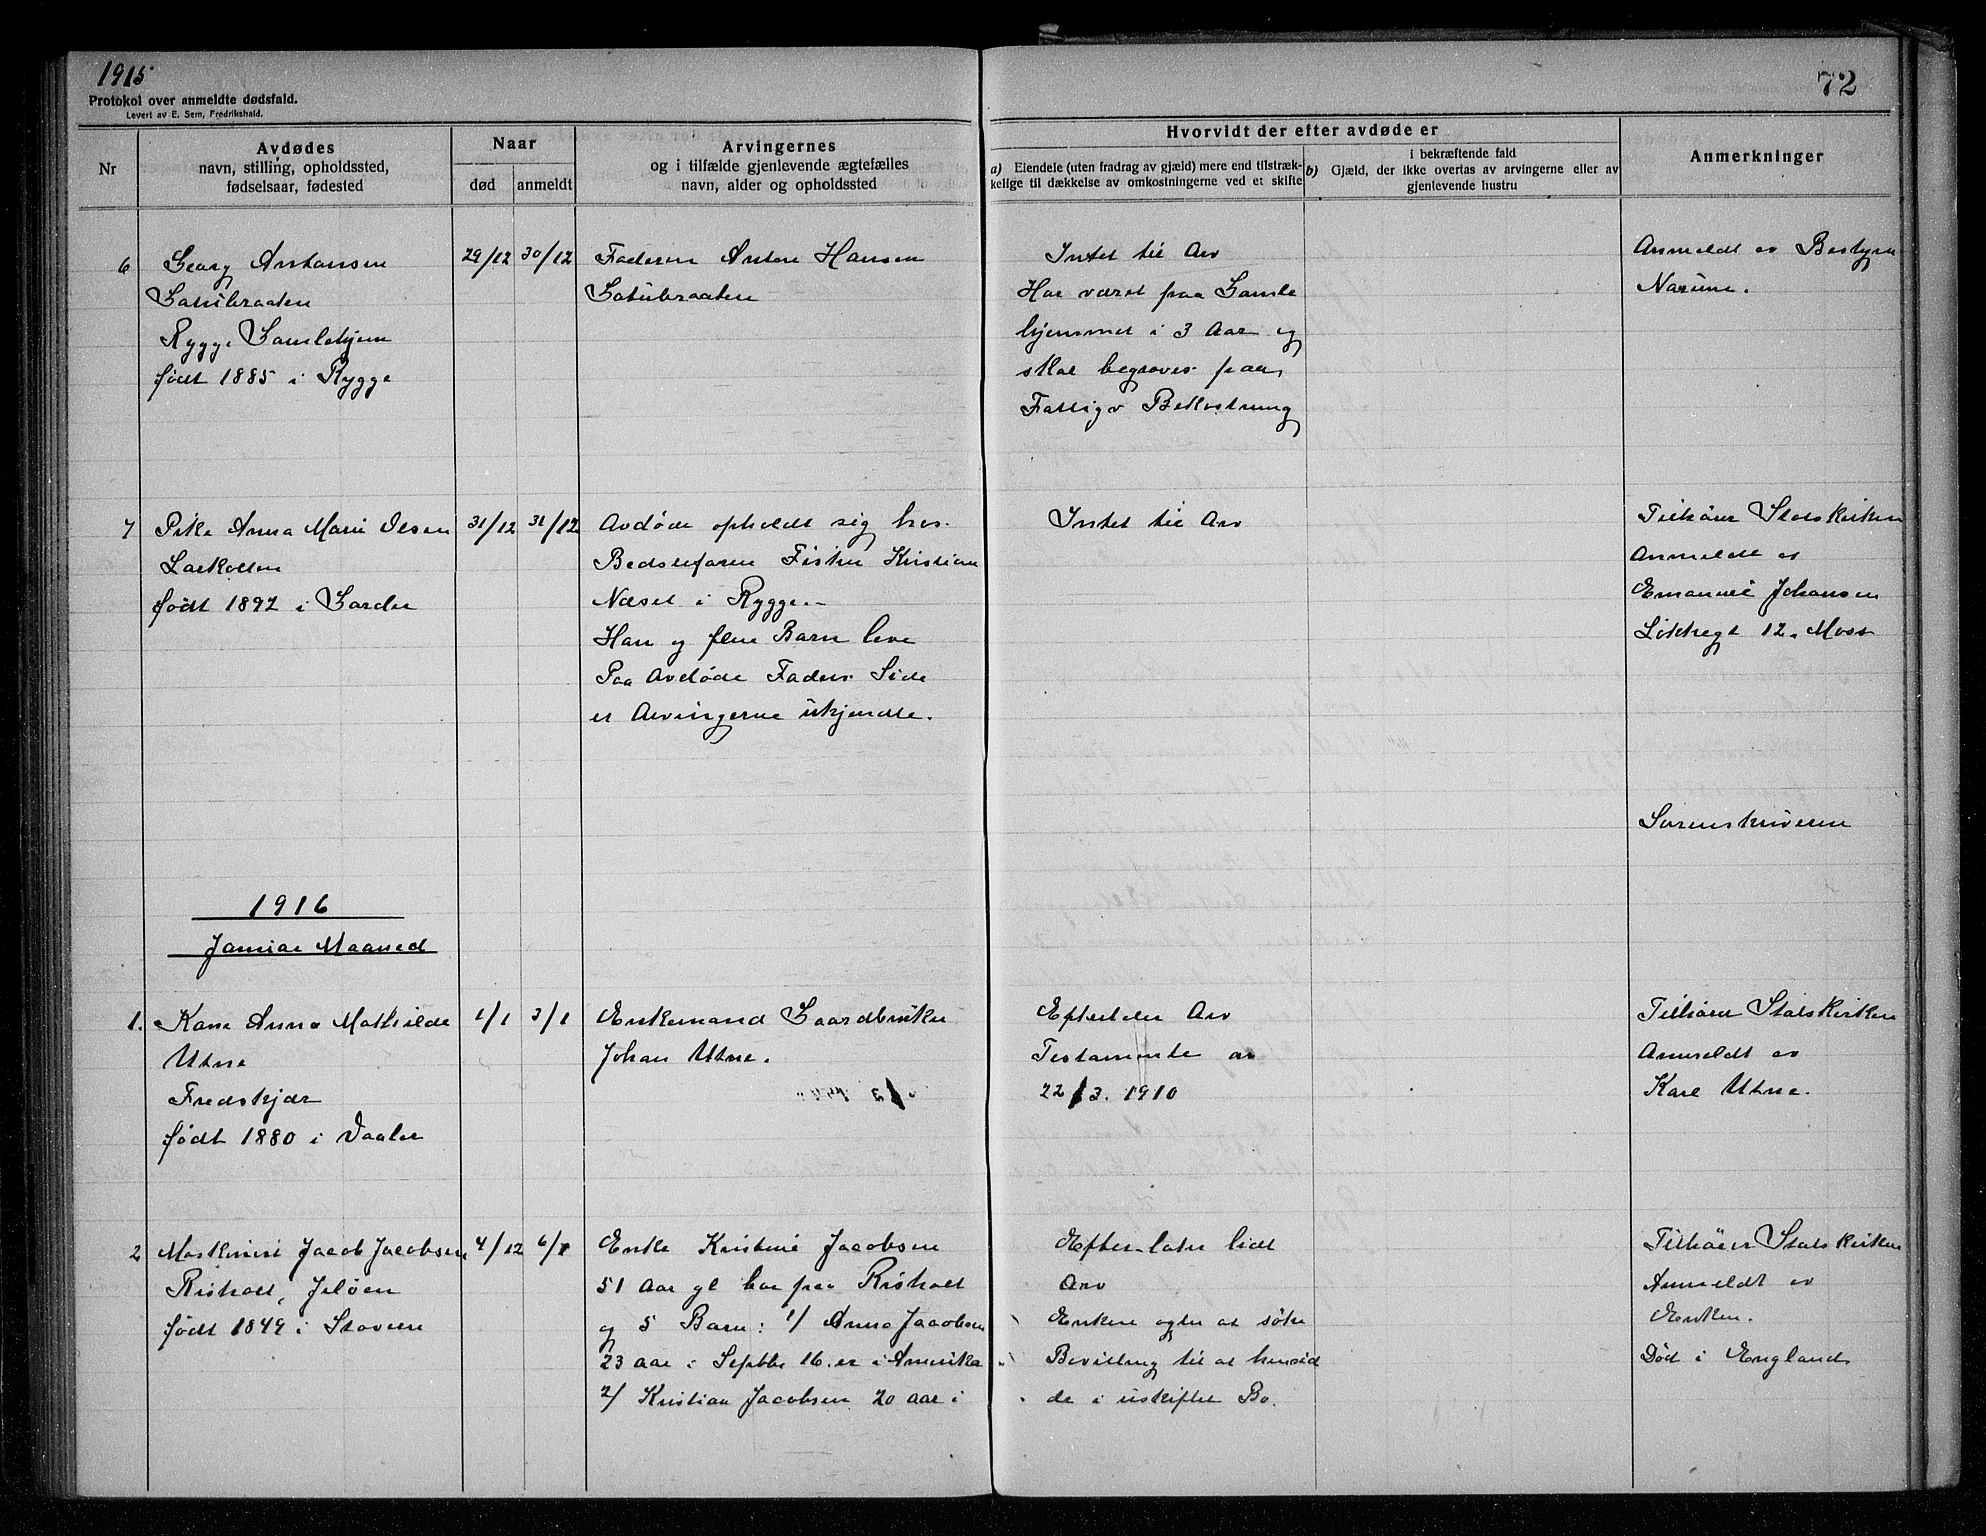 1915
Protokol over anmeldte dødsfald.
Levert av E. Sem, Fredrikshald.
72
Nr
Avdødes
navn, stilling, opholdssted,
fødselsaar, fødested
Naar
død
anmeldt
Arvingernes
og i tilfælde gjenlevende ægtefælles
navn, alder og opholdssted
Hvorvidt der efter avdøde er
a) Eiendele (uten fradrag av gjæld) mere end tilstræk-
kelige til dækkelse av omkostningerne ved et skifte
i bekræftende fald
b) Gjæld, der ikke overtas av arvingerne eller av
gjenlevende hustru
Anmerkninger
6
Georg Antonsen
Rygge Gamlehjem
født 1885 i Rygge
29/12
30/12
Faderen Anton Hansen
Intet til Arv
Har været paa Gamle
hjemmet i 3 Aar og
skal begraves paa
Fattigv Bekostning
Anmeldt av Bestyrer
7
Pike Anna Marie Olsen
Larkollen
født 1892 i
31/12
31/12
Avdøde opholdt sig hos
Bedstefaren Fisker Kristian
Næset i Rygge
Han og flere Barn leve
Paa Avdøde Faders Side
er Arvingerne ukjendte.
Intet til Arv
Tilhører Statskirken
Anmeldt av
Emanuel Johansen
12. Moss
Sorenskriveren
1916
Januar Maaned
1.
Kone Anna Mathilde
Utne
Fredskjær
født 1880 i Vaaler
1/1
3/1
Enkemand Gaardbruker
Johan Utne.
Efterlader Arv
Testamente av
22/3. 1910
Tilhører Statskirken
Anmeldt av
Karl Utne.
2
Maskinist Jacob Jacobsen
Risholt, Jeløen
født 1849 i Stavern
4/12
6/1
Enke Kristine Jacobsen
51 Aar gl bor paa Risholt
og 5 Barn: 1/ Anna Jacobsen
23 aar i Septbr 16. er i Amerika
2/ Kristian Jacobsen 20 aar i
Efterlater lidt
Arv
Enken agter at søke
Bevilling til at hensid
de i uskiftet Bo.
Tilhører Statskirken
Anmeldt av
Enken.
Død i England